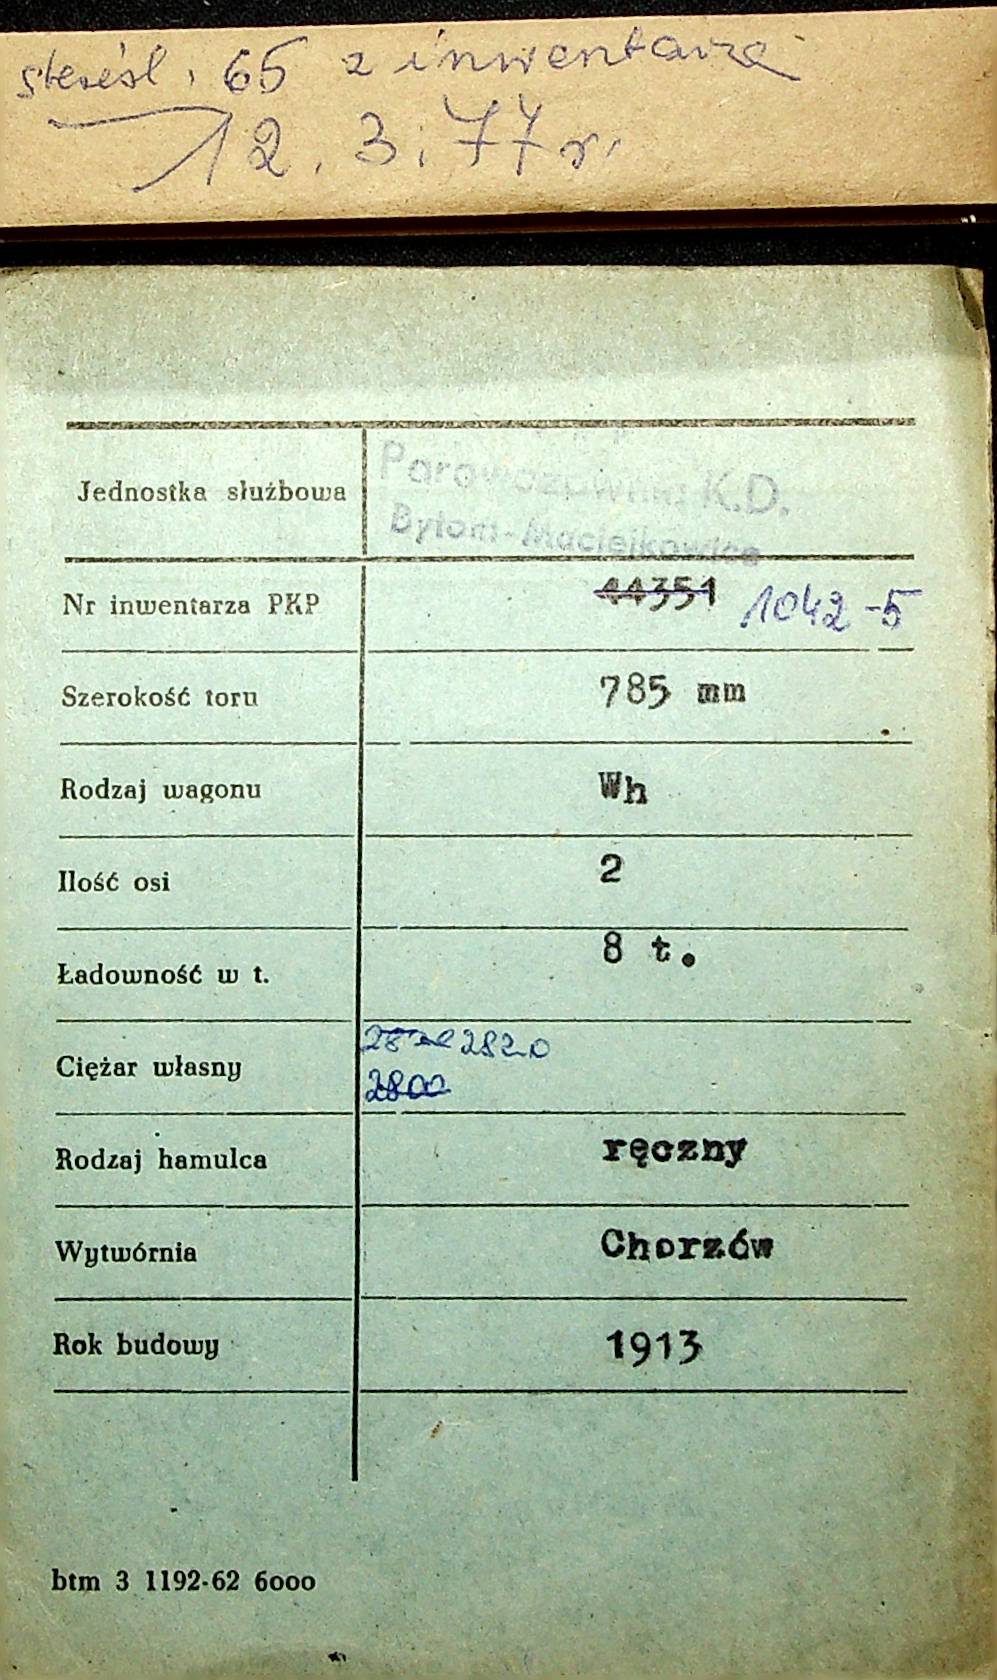 65 z inwentarza
12.3.77r.
Jednostka służbowa
Parowozownia K.D.
Bytom-Maciejkowice
Nr inwentarza PKP 44351 1042-5
Szerokość toru 785 mm
Rodzaj wagonu Wh
Ilość osi 2
Ładowność w t. 8 t.
2820
Ciężar własny
2800
Rodzaj hamulca ręczny
Wytwórnia Chorzów
Rok budowy 1913
btm 3 1192-62 6000